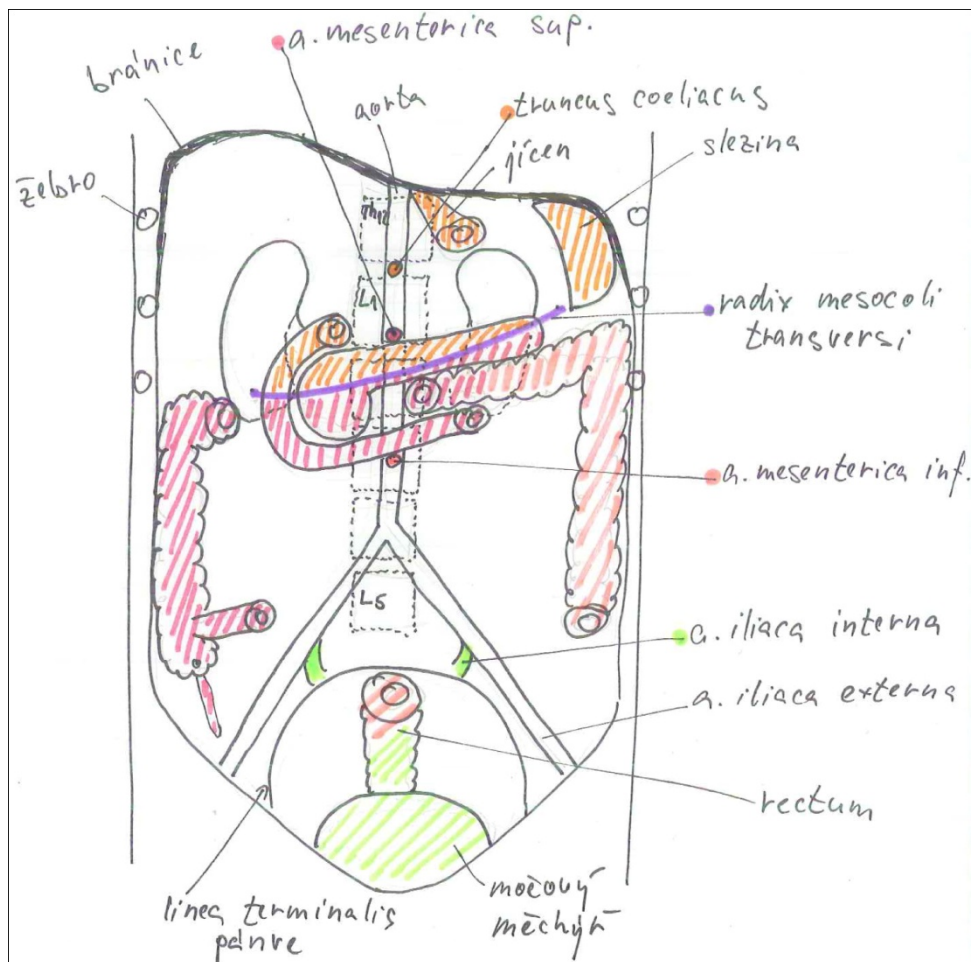 a. mesenterica sup.
bránice
aorta
truncus coeliacus
jícen
slezina
žebro
Th12
L1
radix mesocoli
transversi
a. mesenterica inf.
L5
a. iliaca interna
a. iliaca externa
rectum
linea terminalis
pánve
močový
měchýř